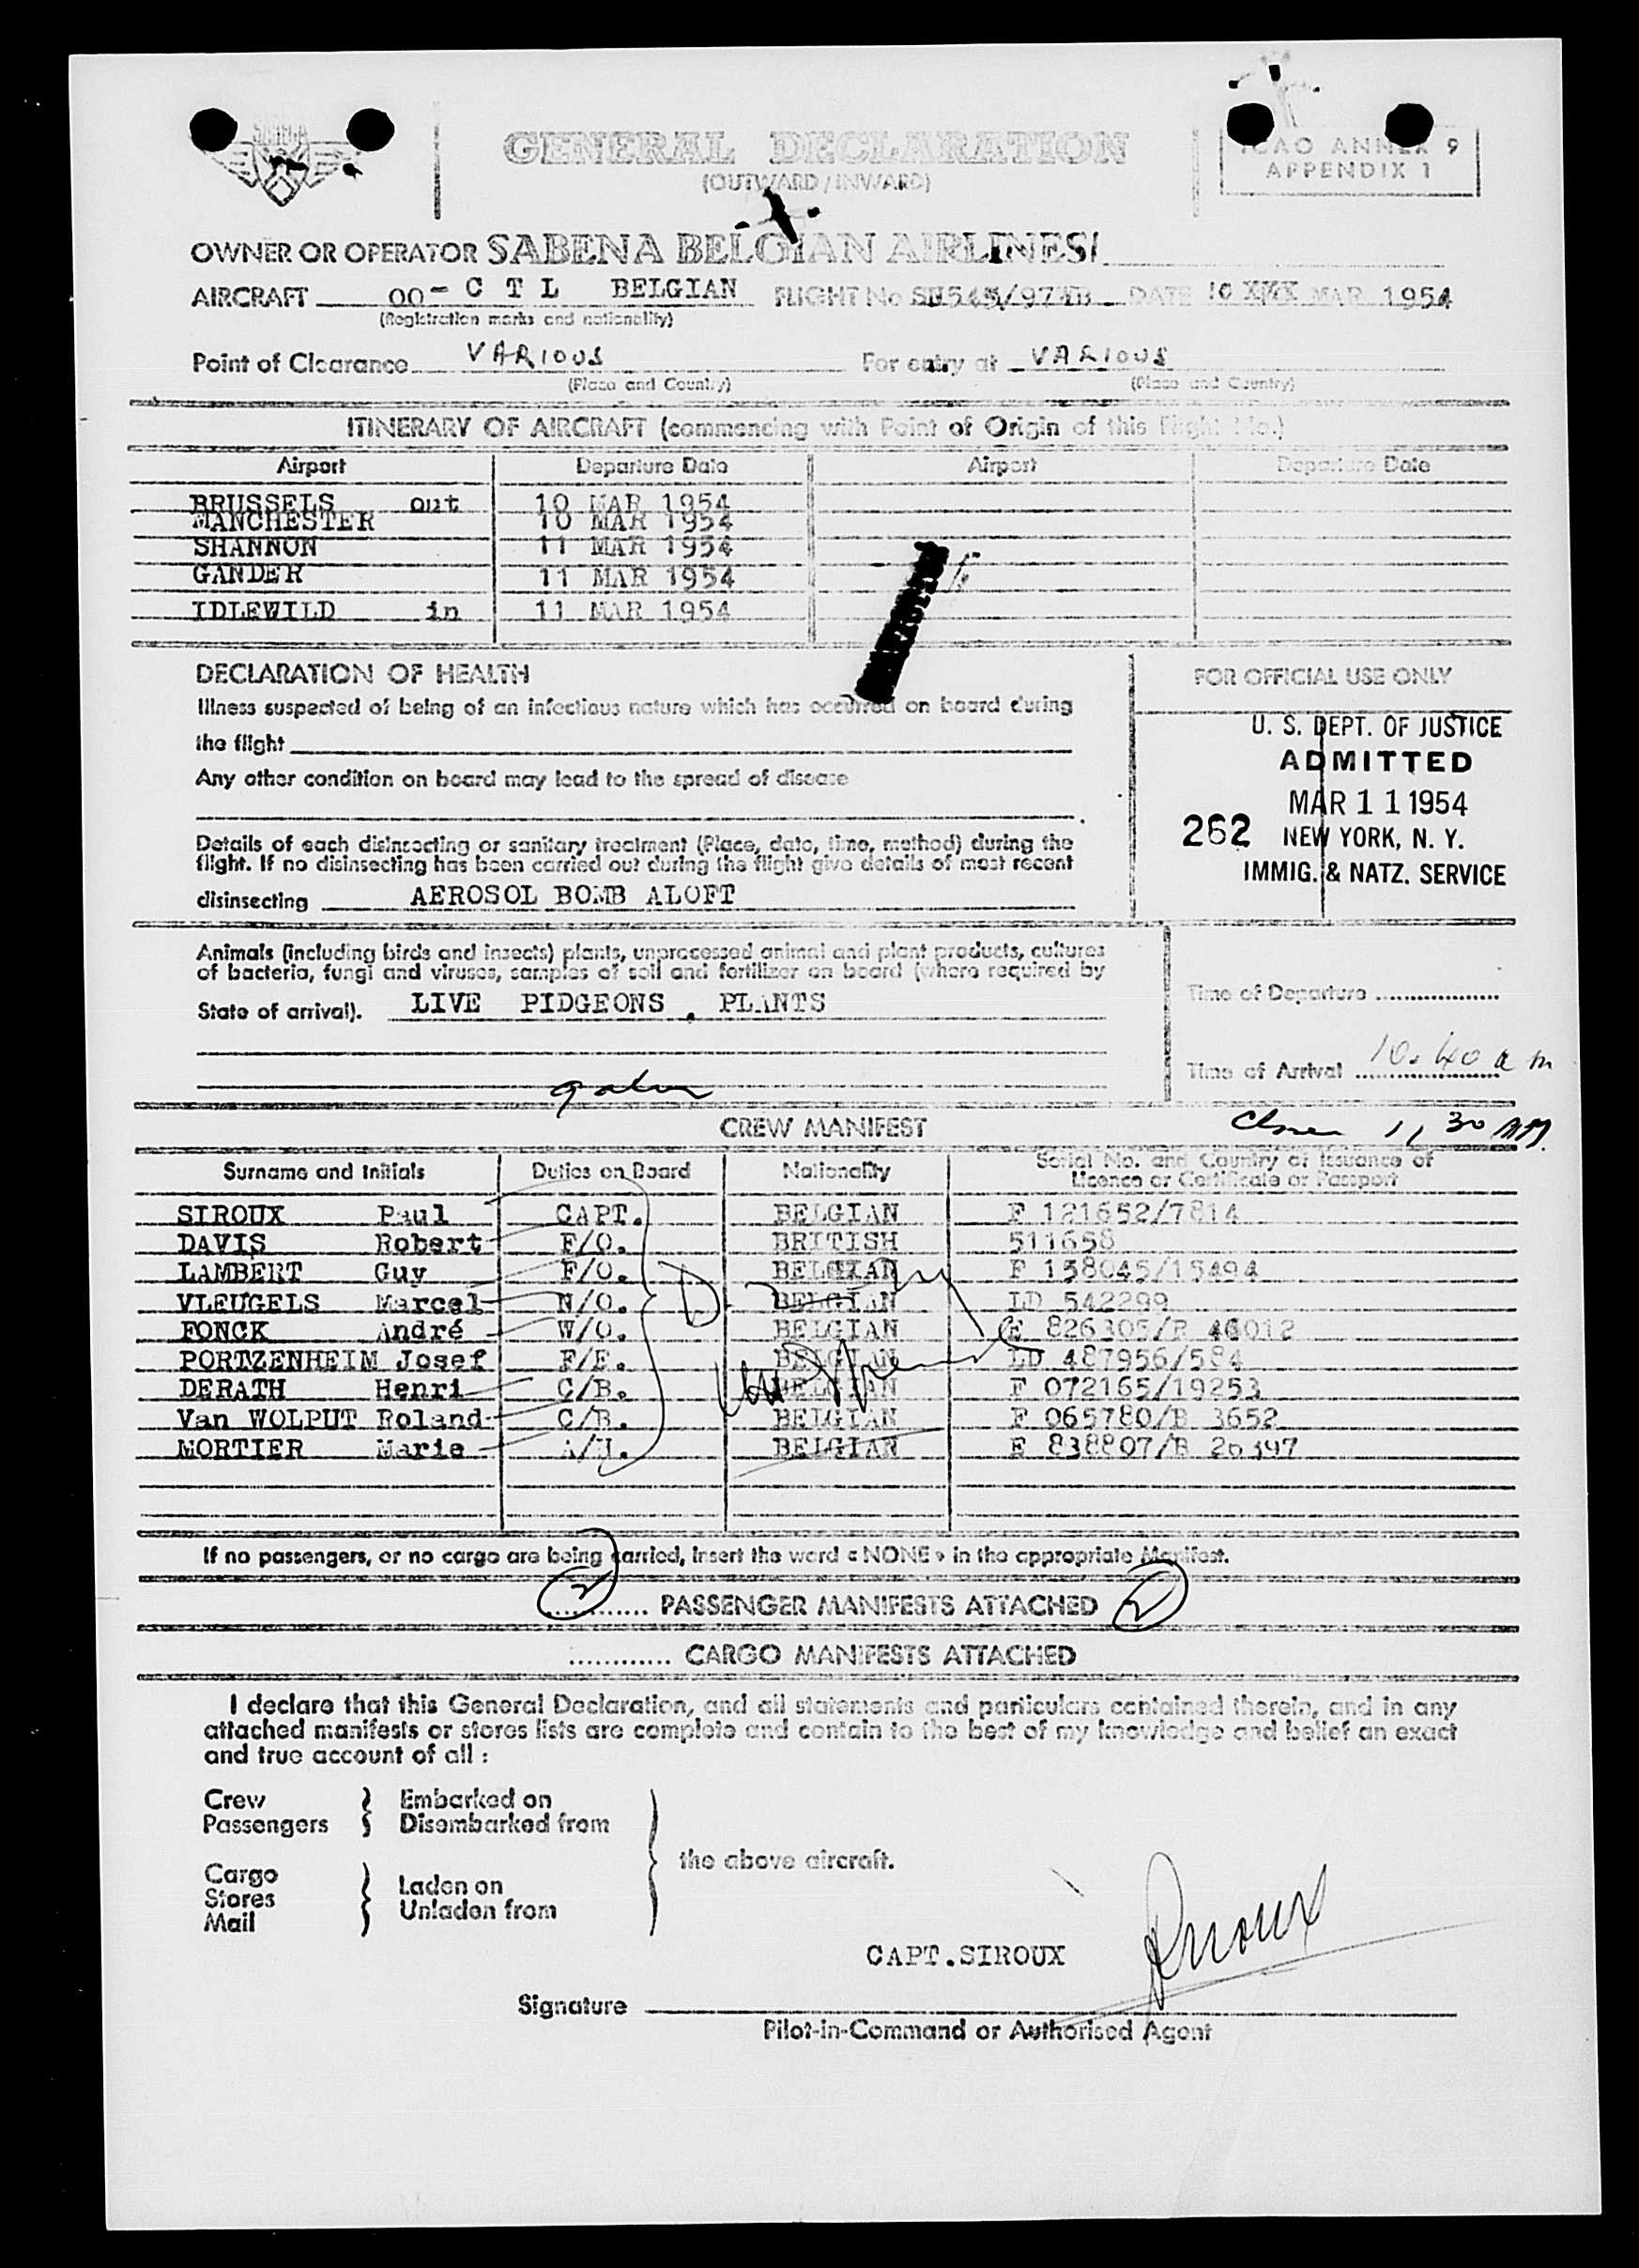 SABENA
GENERAL DECLARATION
(OUTWARD / INWARD)
ICAO ANNEX 9
APPENDIX 1
OWNER OR OPERATOR SABENA BELGIAN AIRLINES
AIRCRAFT OO- C T L BELGIAN FLIGHT No DATE 10 MAR 1954
(Registration marks and nationality)
Point of Clearance VARIOUS For entry at VARIOUS
(Place and Country) (Place and Country)
ITINERARY OF AIRCRAFT (commencing with Point of Origin of this Flight No.)
Airport Departure Date Airport Departure Date
BRUSSELS out 10 MAR 1954
MANCHESTER 10 MAR 1954
SHANNON 11 MAR 1954
GANDER 11 MAR 1954
IDLEWILD in 11 MAR 1954
DECLARATION OF HEALTH
Illness suspected of being of an infectious nature which has occurred on board during
the flight
Any other condition on board may lead to the spread of disease
Details of each disinsecting or sanitary treatment (Place, date, time, method) during the
flight. If no disinsecting has been carried out during the flight give details of most recent
disinsecting AEROSOL BOMB ALOFT
FOR OFFICIAL USE ONLY
U. S. DEPT. OF JUSTICE
ADMITTED
MAR 11 1954
262 NEW YORK, N. Y.
IMMIG. & NATZ. SERVICE
Animals (including birds and insects) plants, unprocessed animal and plant products, cultures
of bacteria, fungi and viruses, samples of soil and fertilizer on board (where required by
State of arrival). LIVE PIDGEONS , PLANTS
Time of Departure
Time of Arrival 10.40 a m
11 30 AM
CREW MANIFEST
Surname and Initials Duties on Board Nationality Serial No. and Country of Issuance of
Licence or Certificate or Passport
SIROUX Paul CAPT. BELGIAN F 121652/7814
DAVIS Robert F/O. BRITISH 511658
LAMBERT Guy F/O. BELGIAN F 158045/15494
VLEUGELS Marcel N/O. BELGIAN LD 542299
FONCK André W/O. BELGIAN E 826305/B 46012
PORTZENHEIM Josef F/E. BELGIAN LD 487956/584
DERATH Henri C/B. BELGIAN F 072165/19253
Van WOLPUT Roland C/B. BELGIAN F 065780/B 3652
MORTIER Marie A/H. BELGIAN E 838807/B
If no passengers, or no cargo are being carried, insert the word « NONE » in the appropriate Manifest.
2 ............ PASSENGER MANIFESTS ATTACHED 2
............ CARGO MANIFESTS ATTACHED
I declare that this General Declaration, and all statements and particulars contained therein, and in any
attached manifests or stores lists are complete and contain to the best of my knowledge and belief an exact
and true account of all :
Crew Embarked on
Passengers Disembarked from
the above aircraft.
Cargo
Stores Laden on
Mail Unladen from
CAPT.SIROUX Siroux
Signature
Pilot-in-Command or Authorised Agent